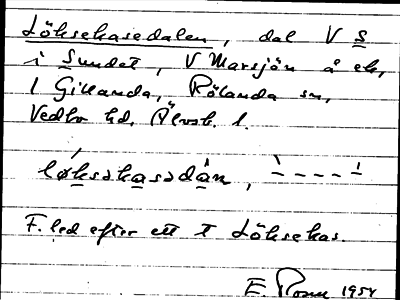 Löksekasedalen, dal V S
i Sundet, V Marsjön å ek,
1 Gillanda, Rölanda sn,
Vedbo hd, Älvsb. l.
løksəkasədàn,
F. led efter ett t Löksekas.
E. 1954